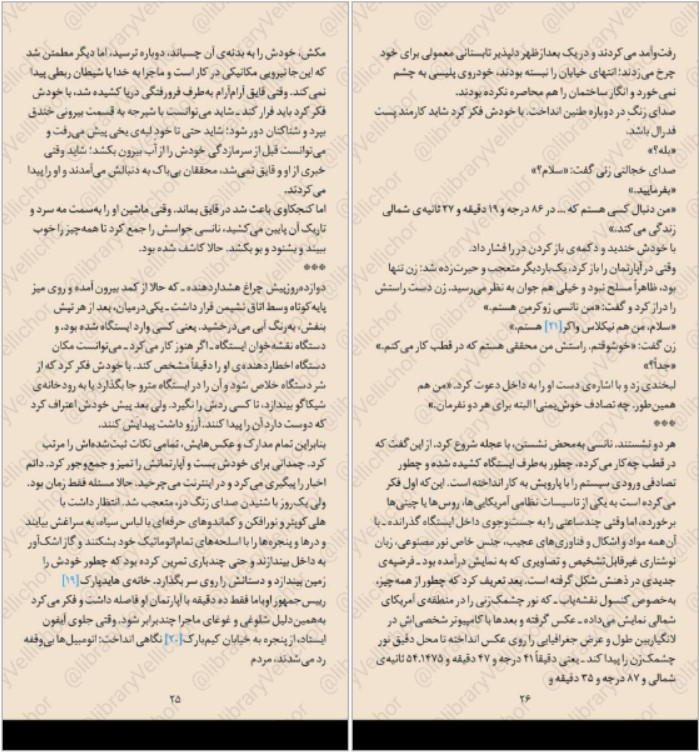 مکش، خودش را به بدنه‌ی آن چسباند، دوباره ترسید، اما دیگر مطمئن شد
که این جا نیرویی مکانیکی در کار است و ماجرا به خدا یا شیطان ربطی پیدا
نمی‌کند. وقتی قایق آرام‌آرام به‌طرف فرورفتگی دریا کشیده شد، با خودش
فکر کرد باید فرار کند ـ شاید می‌توانست با شیرجه به قسمت بیرونی خندق
بپرد و شناکنان دور شود؛ شاید حتی تا خود لبه‌ی یخی پیش می‌رفت و
می‌توانست قبل از سرمازدگی خودش را از آب بیرون بکشد؛ شاید وقتی
خبری از او و قایق نمی‌شد، محققان بی‌باک به دنبالش می‌آمدند و او را پیدا
می‌کردند.
اما کنجکاوی باعث شد در قایق بماند. وقتی ماشین او را به‌سمت مه سرد و
تاریک آن پایین می‌کشید، نانسی حواسش را جمع کرد تا همه‌چیز را خوب
ببیند و بشنود و بو بکشد. حالا کاشف شده بود.
***
دوازده‌روز پیش چراغ هشداردهنده ـ که حالا از کمد بیرون آمده و روی میز
پایه‌کوتاه وسط اتاق نشیمن قرار داشت ـ یکی‌درمیان، بعد از هر تپش
بنفش، به‌رنگ آبی می‌درخشید. یعنی کسی وارد ایستگاه شده بود. و
دستگاه نقشه‌خوان ایستگاه ـ اگر هنوز کار می‌کرد ـ می‌توانست مکان
دستگاه اخطاردهنده‌ی او را دقیقاً مشخص کند. با خودش فکر کرد که از
شر دستگاه خلاص شود و آن را در ایستگاه مترو جا بگذارد یا به رودخانه‌ی
شیکاگو بیندازد، تا کسی ردش را نگیرد. ولی بعد پیش خودش اعتراف کرد
که دوست دارد آن را پیدا کنند. آرزو داشت پیدایش کنند.
بنابراین تمام مدارک و عکس‌هایش، تمامی نکات ثبت‌شده‌اش را مرتب
کرد. چمدانی برای خودش بست و آپارتمانش را تمیز و جمع‌وجور کرد. دائم
اخبار را پیگیری می‌کرد و در اینترنت می‌چرخید. حالا مسئله فقط زمان بود.
ولی یک‌روز با شنیدن صدای زنگ در، متعجب شد. انتظار داشت با
هلی‌کوپتر و نورافکن و کماندوهای حرفه‌ای با لباس سیاه، به سراغش بیایند
و درها و پنجره‌ها را با اسلحه‌های تمام‌اتوماتیک خود بشکنند و گاز اشک‌آور
به داخل بیندازند و حتی چندباری تمرین کرده بود که چطور خودش را
زمین بیندازد و دستانش را روی سر بگذارد. خانه‌ی هایدپارک[۱۹]
رییس‌جمهور اوباما فقط ده دقیقه با آپارتمان او فاصله داشت و فکر می‌کرد
به‌همین‌دلیل شلوغی و غوغای ماجرا چندبرابر شود. وقتی جلوی آیفون
ایستاد، از پنجره به خیابان کیم‌بارک[۲۰] نگاهی انداخت: اتومبیل‌ها بی‌وقفه
رد می‌شدند، مردم
۲۵
رفت‌وآمد می‌کردند و در یک بعدازظهر دلپذیر تابستانی معمولی برای خود
چرخ می‌زدند؛ انتهای خیابان را نبسته بودند، خودروی پلیسی به چشم
نمی‌خورد و انگار ساختمان را هم محاصره نکرده بودند.
صدای زنگ در دوباره طنین انداخت. با خودش فکر کرد شاید کارمند پست
فدرال باشد.
«بله؟»
صدای خجالتی زنی گفت: «سلام؟»
«بفرمایید.»
«من دنبال کسی هستم که ... در ۸۶ درجه و ۱۹ دقیقه و ۲۷ ثانیه‌ی شمالی
زندگی می‌کند.»
با خودش خندید و دکمه‌ی باز کردن در را فشار داد.
وقتی در آپارتمان را باز کرد، یک‌باردیگر متعجب و حیرت‌زده شد: زن تنها
بود، ظاهراً مسلح نبود و خیلی هم جوان به نظر می‌رسید. زن دست راستش
را دراز کرد و گفت: «من نانسی زوکرمن هستم.»
«سلام، من هم نیکلاس واکر[۲۱] هستم.»
زن گفت: «خوشوقتم. راستش من محققی هستم که در قطب کار می‌کنم.»
«جداً؟»
لبخندی زد و با اشاره‌ی دست او را به داخل دعوت کرد. «من هم
همین‌طور. چه تصادف خوش‌یمنی! البته برای هر دو نفرمان.»
***
هر دو نشستند. نانسی به‌محض نشستن، با عجله شروع کرد. از این گفت که
در قطب چه‌کار می‌کرده، چطور به‌طرف ایستگاه کشیده شده و چطور
تصادفی ورودی سیستم را با پارویش به کار انداخته است. این‌که اول فکر
می‌کرده است به یکی از تاسیسات نظامی آمریکایی‌ها، روس‌ها یا چینی‌ها
برخورده، اما وقتی چندساعتی را به جست‌وجوی داخل ایستگاه گذرانده ـ با
آن‌همه مواد و اشکال و فناوری‌های عجیب، جنس خاص نور مصنوعی، زبان
نوشتاری غیرقابل‌تشخیص و تصاویری که به نمایش درآمده بود ـ فرضیه‌ی
جدیدی در ذهنش شکل گرفته است. بعد تعریف کرد که چطور از همه‌چیز،
به‌خصوص کنسول نقشه‌یاب ـ که نور چشمک‌زنی را در منطقه‌ی آمریکای
شمالی نمایش می‌داده ـ عکس گرفته و بعدها با کامپیوتر شخصی‌اش در
لانگیاربین طول و عرض جغرافیایی را روی عکس انداخته تا محل دقیق نور
چشمک‌زن را پیدا کند ـ یعنی دقیقاً ۴۱ درجه و ۴۷ دقیقه و ۵۴.۱۴۷۵ ثانیه‌ی
شمالی و ۸۷ درجه و ۳۵ دقیقه و
۲۶
@libraryVellichor